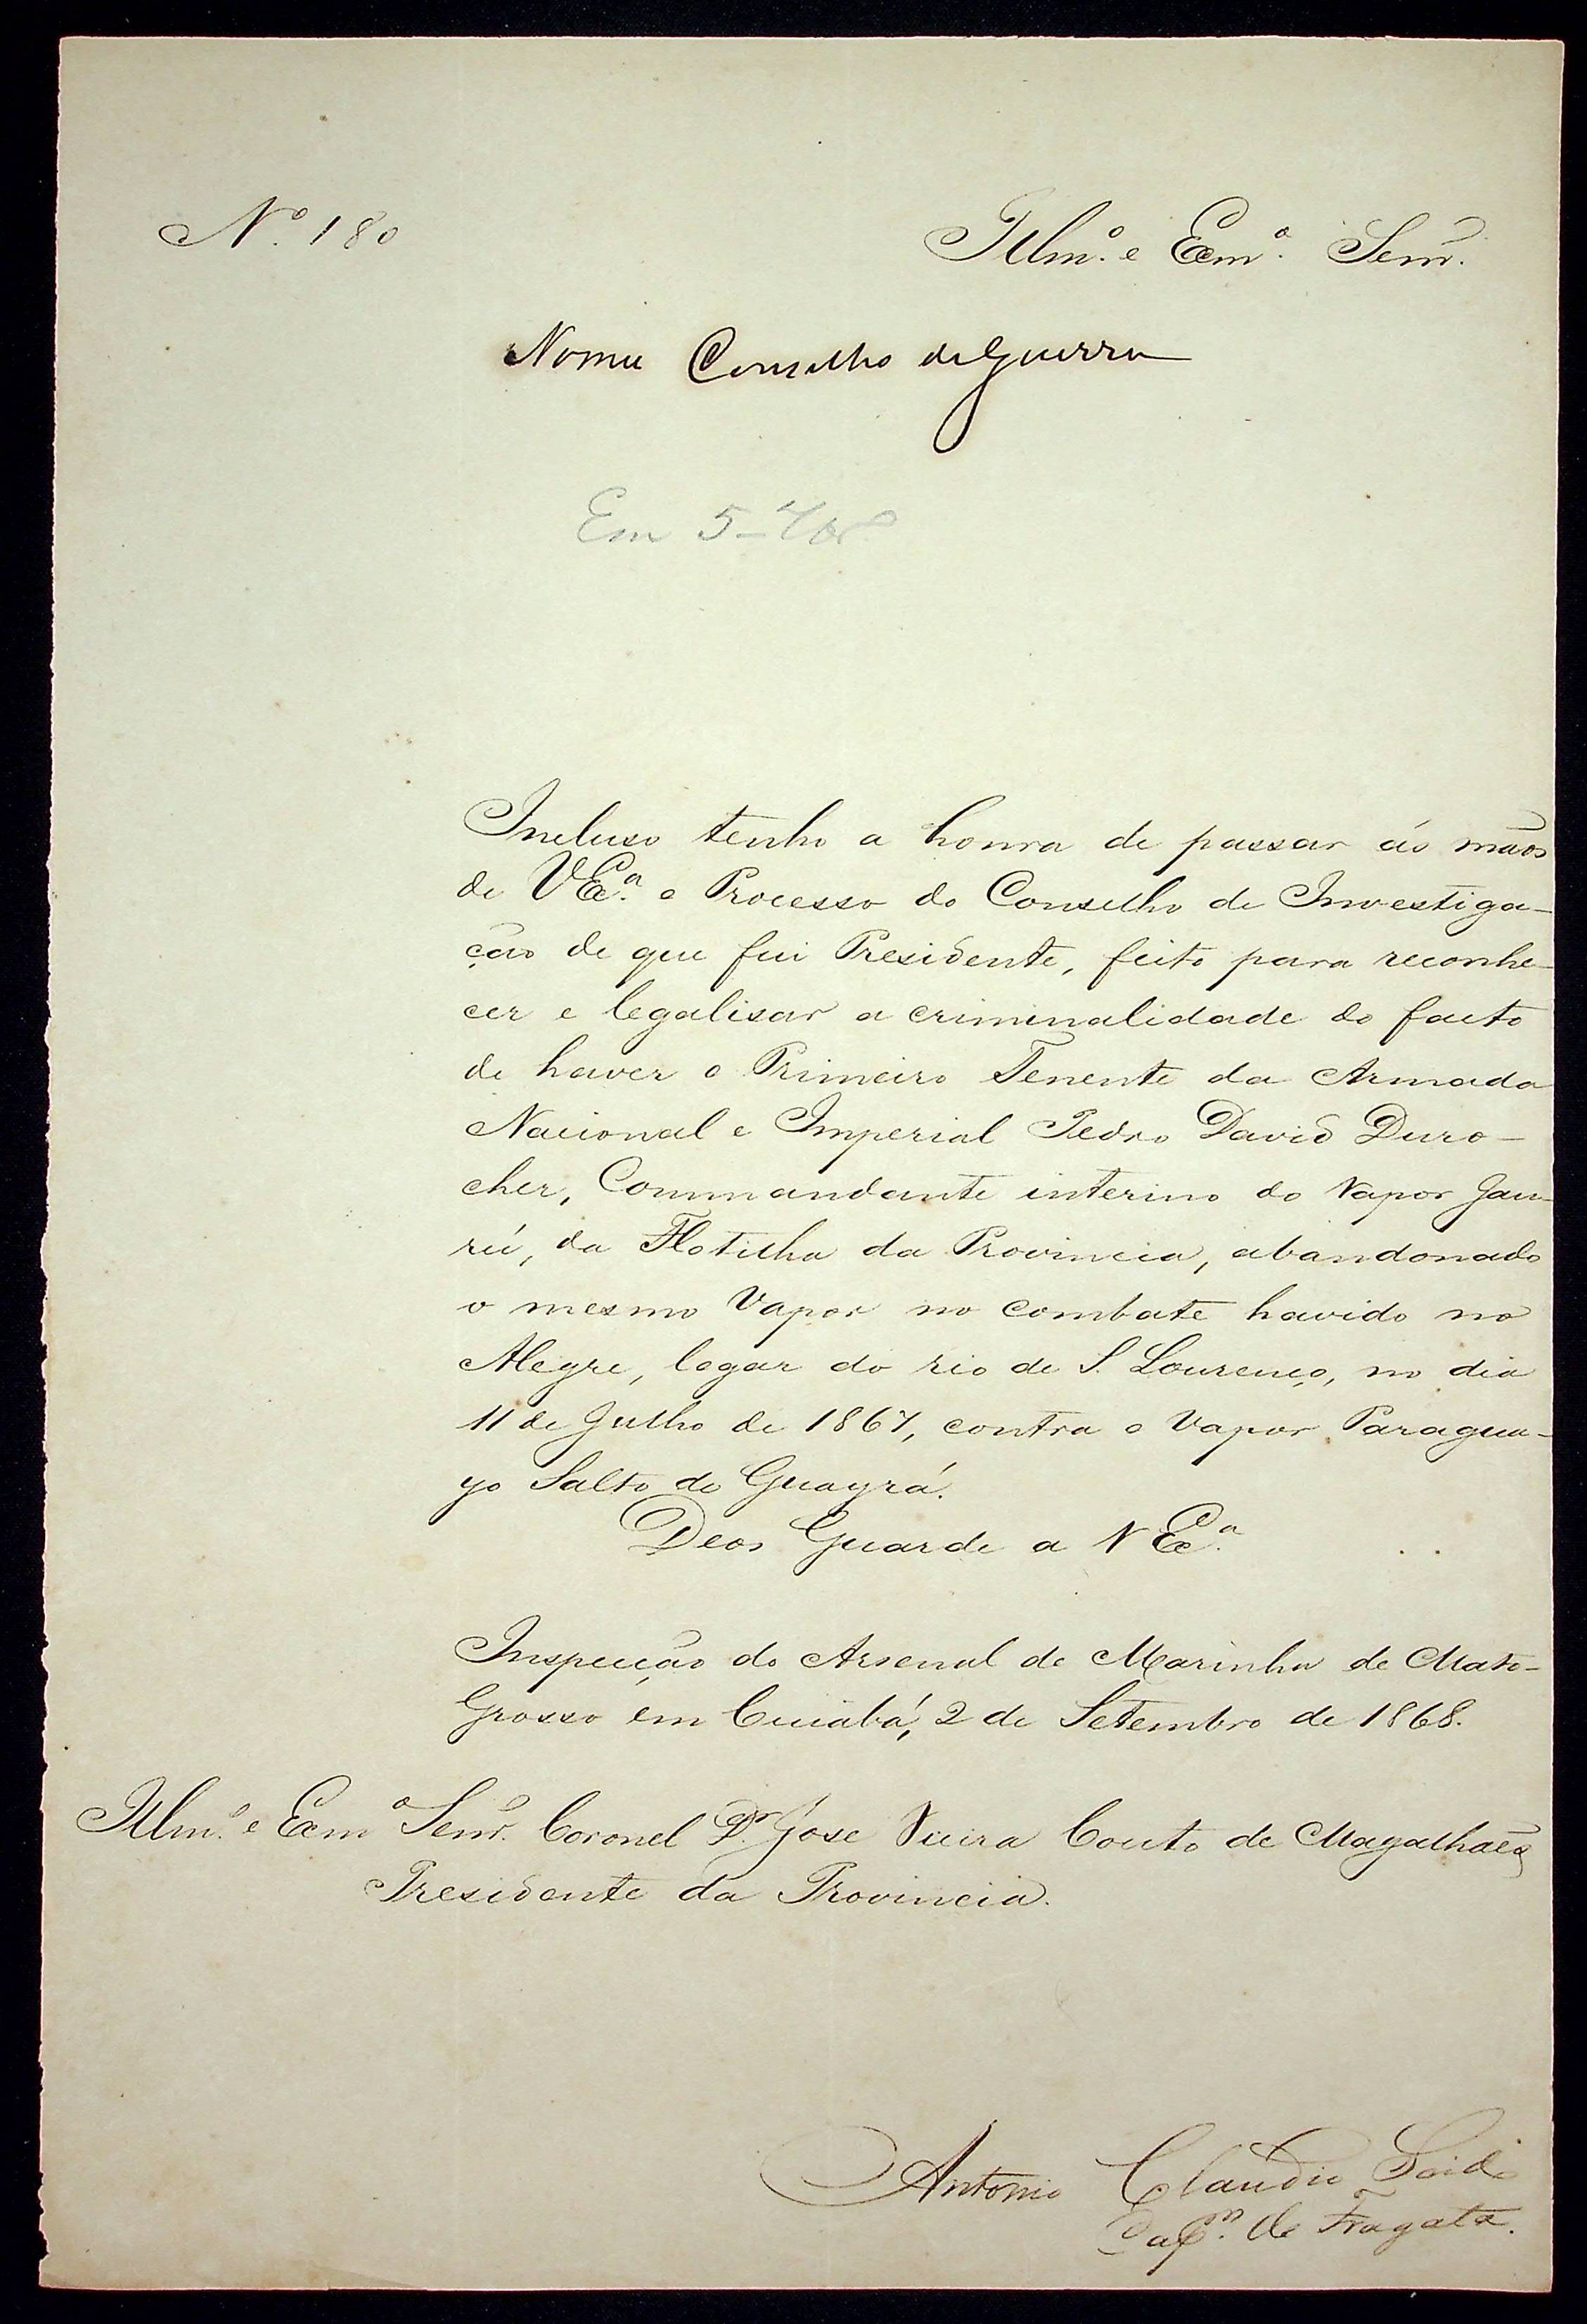 Nº. 180
Illmº. e Exmº. Senr.
Nomeie Conselho de Guerra
Em 5
Incluso tenho a honra de passar ás mãos
de VExª. o Processo do Conselho de Investiga-
ção de que fui Presidente, feito para reconhe-
cer e legalisar a criminalidade do facto
de haver o Primeiro Tenente da Armada
Nacional e Imperial Pedro David Duro-
cher, Commandante interino do Vapor Jau-
rú, da Flotilha da Provincia, abandonado
o mesmo Vapor no combate havido no
Alegre, logar do rio de S. Lourenço, no dia
11 de Julho de 1867, contra o Vapor Paragua-
yo Salto de Guayrá.
Deos Guarde a VExª.
Inspecção do Arsenal de Marinha de Mato-
Grosso em Cuiabá, 2 de Setembro de 1868.
Illmº. e Exmº Senr. Coronel Dr. José Vieira Couto de Magalhães
Presidente da Provincia.
Antonio Claudio Soido
Capm. de Fragata.